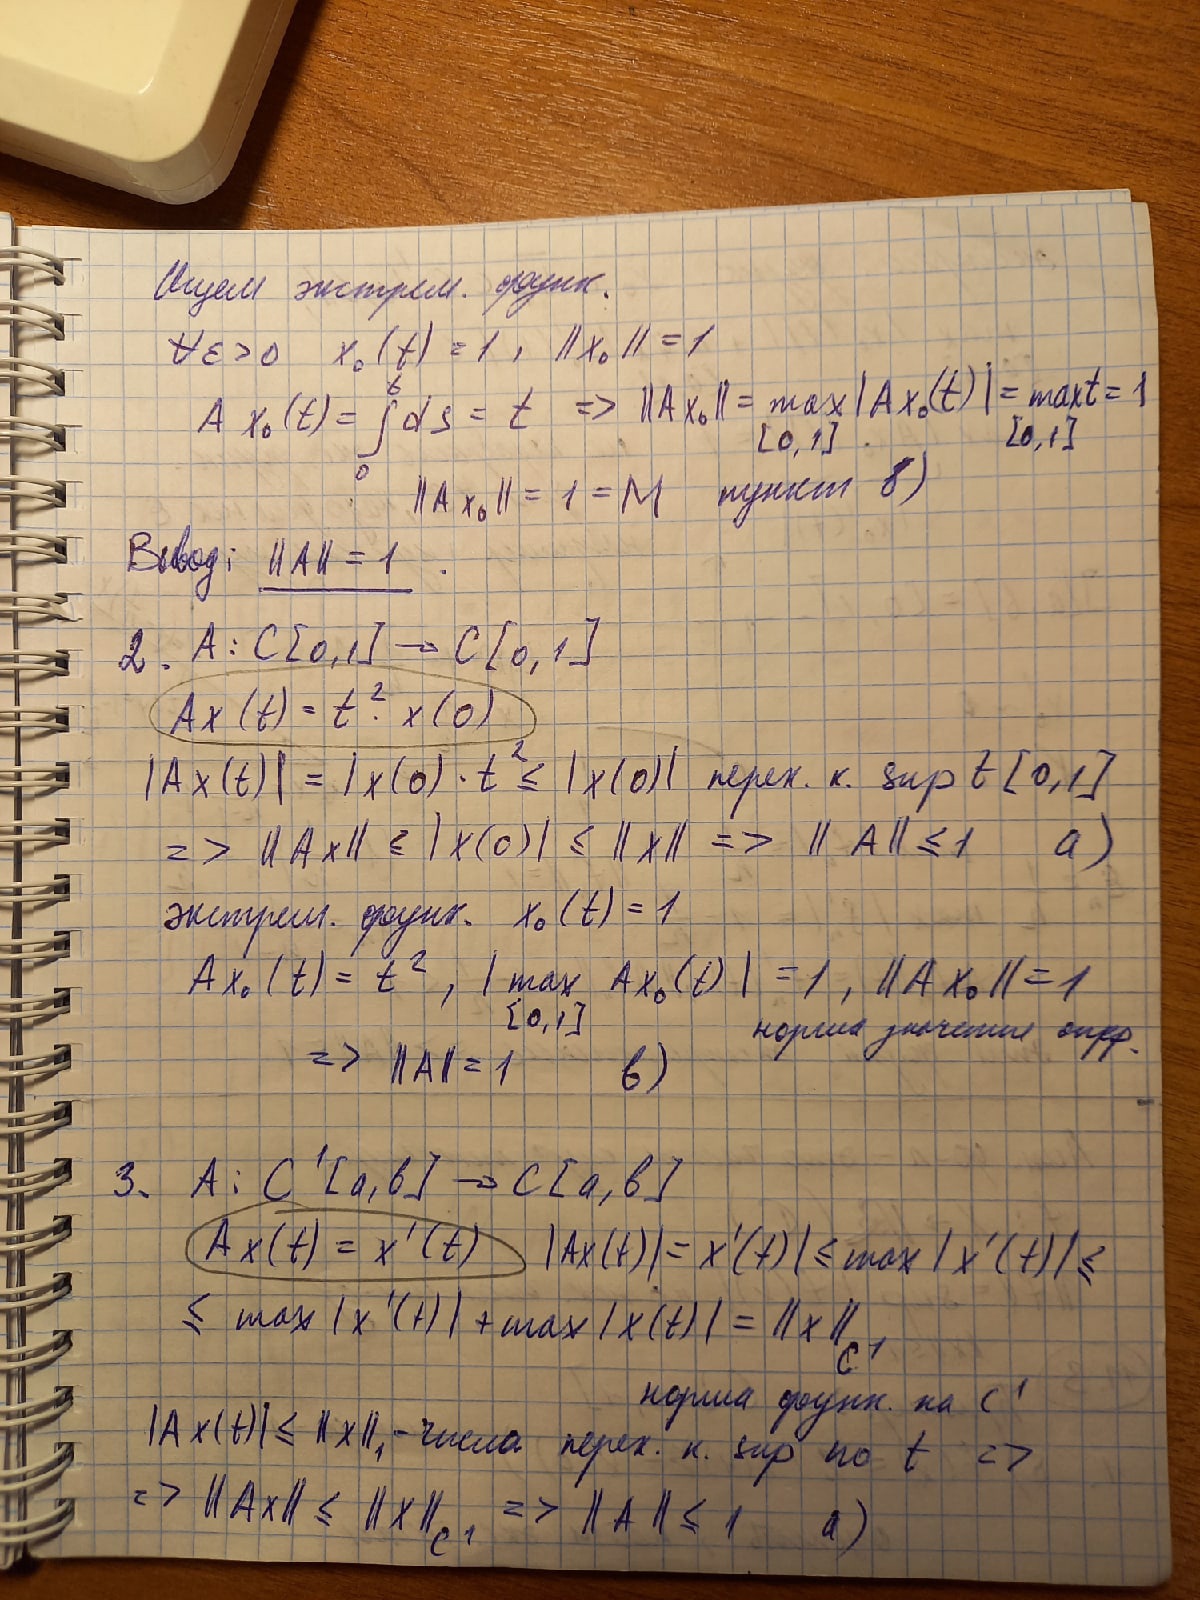 Ищем экстрем. функ.
∀ε>0 x₀(t)=1, ||x₀||=1
A x₀(t)=∫₀ᵗ ds = t => ||Ax₀|| = max[0,1] |Ax₀(t)| = max[0,1] t = 1
||Ax₀|| = 1 = M пункт в)
Вывод: ||A|| = 1.
2. A: C[0,1] → C[0,1]
Ax(t) = t² · x(0)
|Ax(t)| = |x(0) · t² ≤ |x(0)| перех. к. sup t [0,1]
=> ||Ax|| ≤ |x(0)| ≤ ||x|| => ||A|| ≤ 1 а)
экстрем. функ. x₀(t) = 1
Ax₀(t) = t², |max[0,1] Ax₀(t)| = 1, ||Ax₀|| = 1
норма значения
=> ||A|| = 1 в)
3. A: C'[a,b] → C[a,b]
Ax(t) = x'(t) |Ax(t)| = x'(t)| ≤ max |x'(t)| ≤
≤ max |x'(t)| + max |x(t)| = ||x||C¹
норма функ. на C'
|Ax(t)| ≤ ||x||₁ - числа перех. к. sup по t =>
=> ||Ax|| ≤ ||x||C¹ => ||A|| ≤ 1 а)